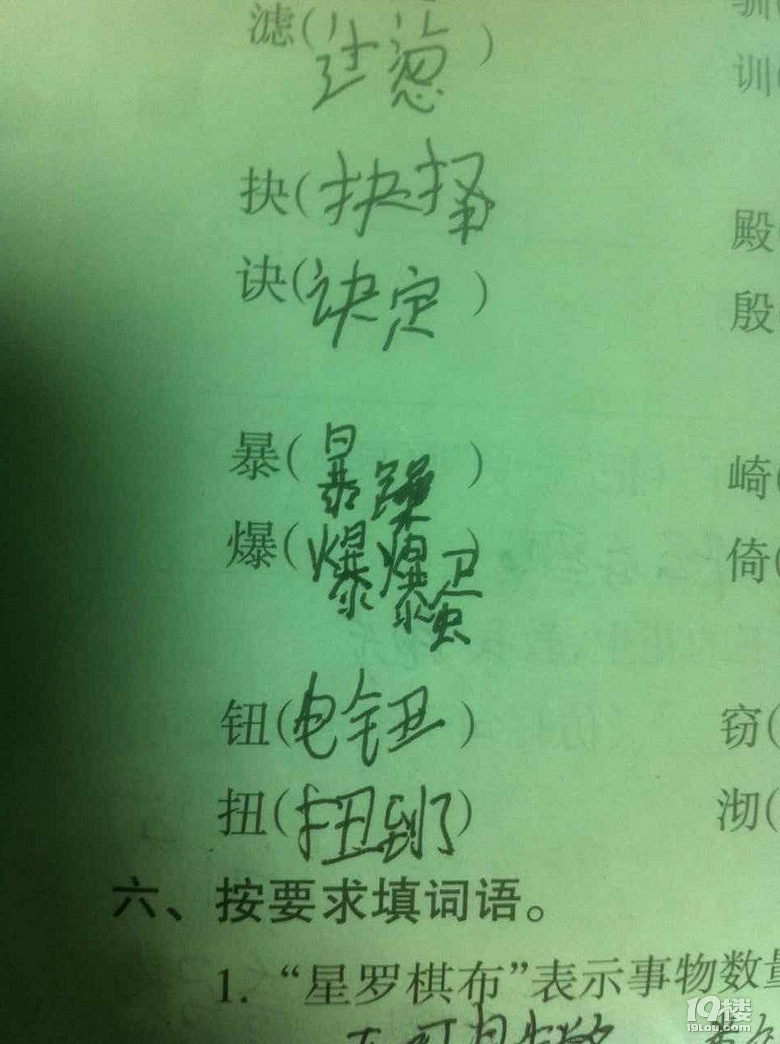 滤(过滤)
驯
训(
抉(抉择
诀(诀定)
殿(
殷(
暴(暴躁)
爆(爆爆蛋)
崎(
倚(
钮(电钮)
窃(
扭(扭到了)
沏(
六、按要求填词语。
1. “星罗棋布”表示事物数量
19楼
19lou.com